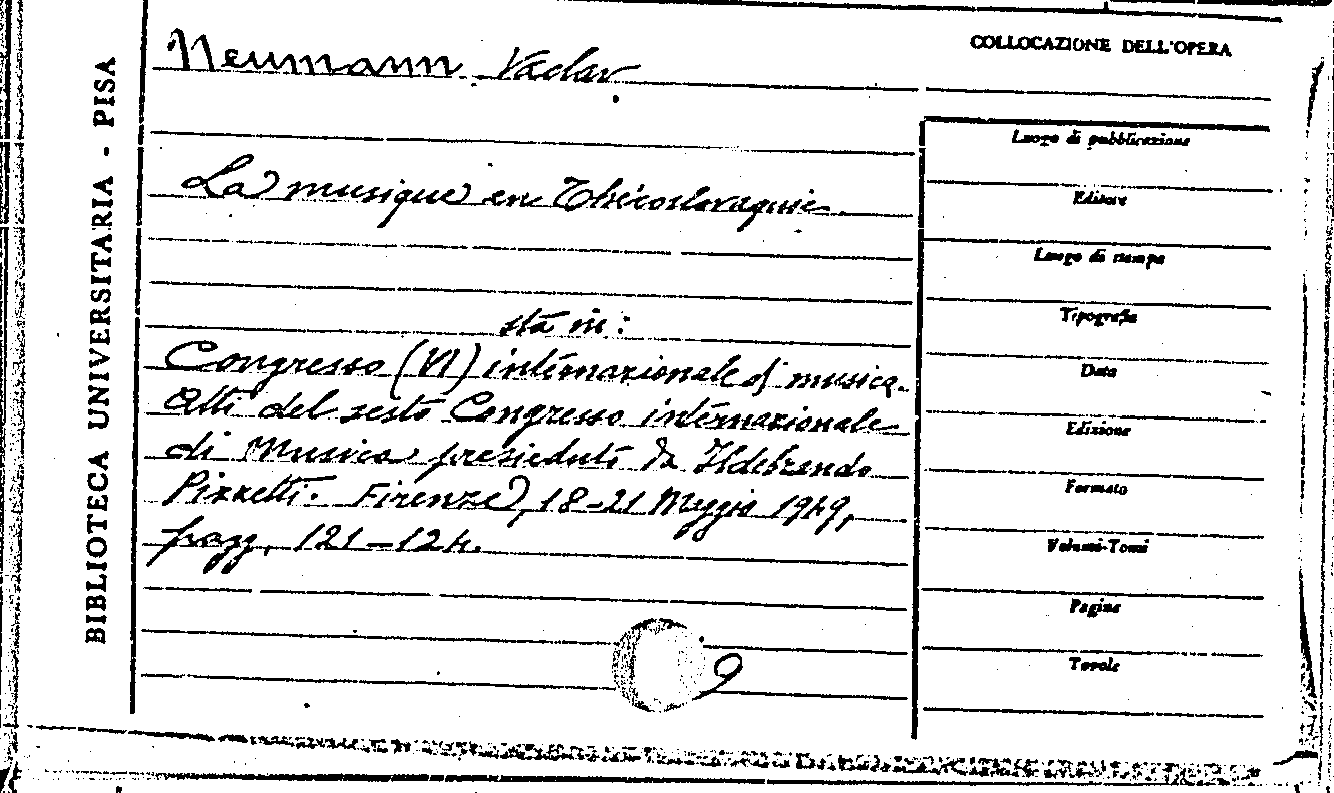 BIBLIOTECA UNIVERSITARIA - PISA
Neumann Vaclav
La musique en Thécoslovaquie
sta in:
Congresso (VI) internazionale di musica.
Atti del sesto Congresso internazionale
di Musica presieduto da Ildebrando
Pizzetti. Firenze, 18-21 Maggio 1949,
pagg. 121-124.
9
COLLOCAZIONE DELL'OPERA
Luogo di pubblicazione
Editore
Luogo di stampa
Tipografia
Data
Edizione
Formato
Volumi-Tomi
Pagine
Tavole